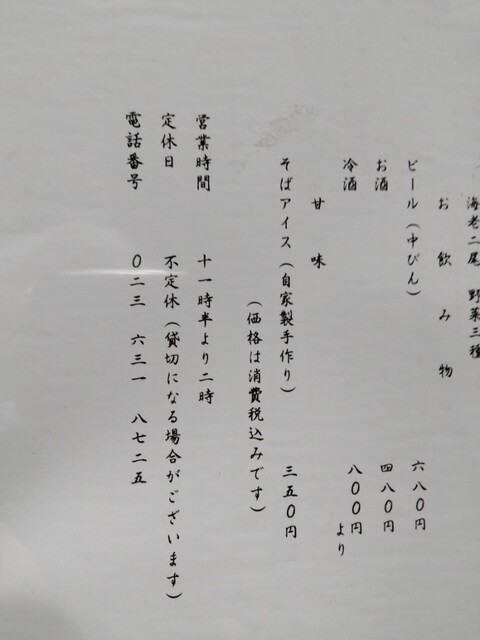 海老二尾　野菜三種
お飲み物
ビール（中びん）　六八〇円
お酒　四八〇円
冷酒　八〇〇円より
甘味
そばアイス（自家製手作り）　三五〇円
（価格は消費税込みです）
営業時間　十一時半より二時
定休日　不定休（貸切になる場合がございます）
電話番号　〇二三　六三一　八七二五